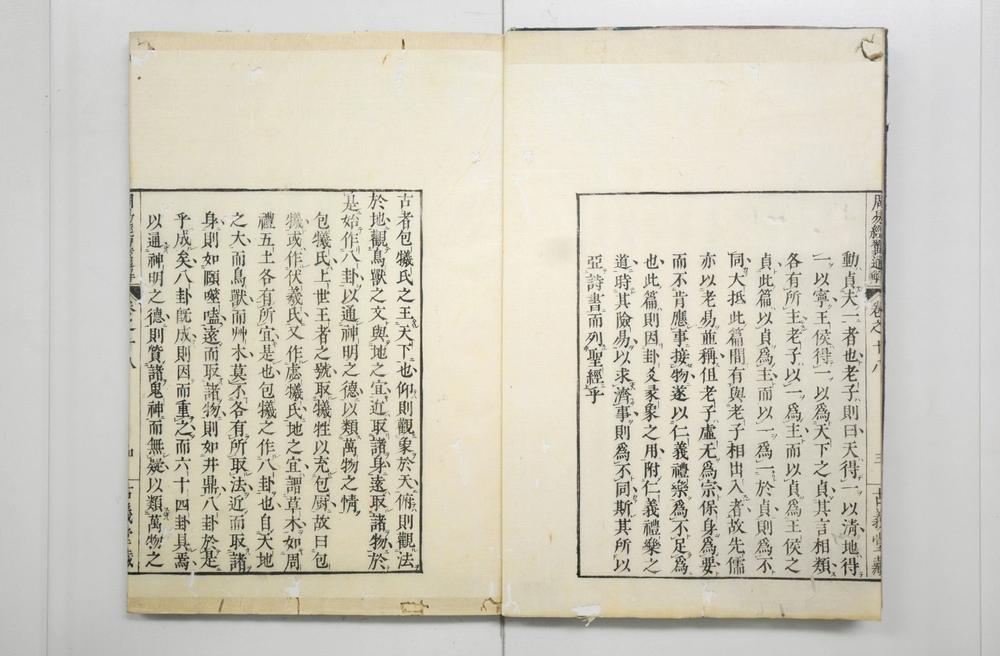 周易經翼通解 卷之十八 三 古義堂藏
動貞夫一者也老子則曰天得一以清地得
一以寧王侯得一以爲天下之貞其言相類
各有所主老子以一爲主而以貞爲王侯之
貞此篇以貞爲主而以一爲一於貞則爲不
同大抵此篇間有與老子相出入者故先儒
亦以老易並稱但老子虛无爲宗保身爲要
而不肯應事接物遂以仁義禮樂爲不足爲
也此篇則因卦爻彖象之用附仁義禮樂之
道時其險易以求濟事則爲不同斯其所以
亞詩書而列聖經乎
古者包犧氏之王天下也仰則觀象於天俯則觀法
於地觀鳥獸之文與地之宜近取諸身遠取諸物於
是始作八卦以通神明之德以類萬物之情
包犧氏上世王者之號取犧牲以充包厨故曰包
犧或作伏羲氏又作虙犧氏地之宜謂草木如周
禮五土各有所宜是也包犧之作八卦也自天地
之大而鳥獸而艸木莫不各有所取法近而取諸
身則如頤噬嗑遠而取諸物則如井鼎八卦於是
乎成矣八卦旣成則因而重之而六十四卦具焉
以通神明之德則質諸鬼神而無疑以類萬物之
卷之十八 古義堂藏